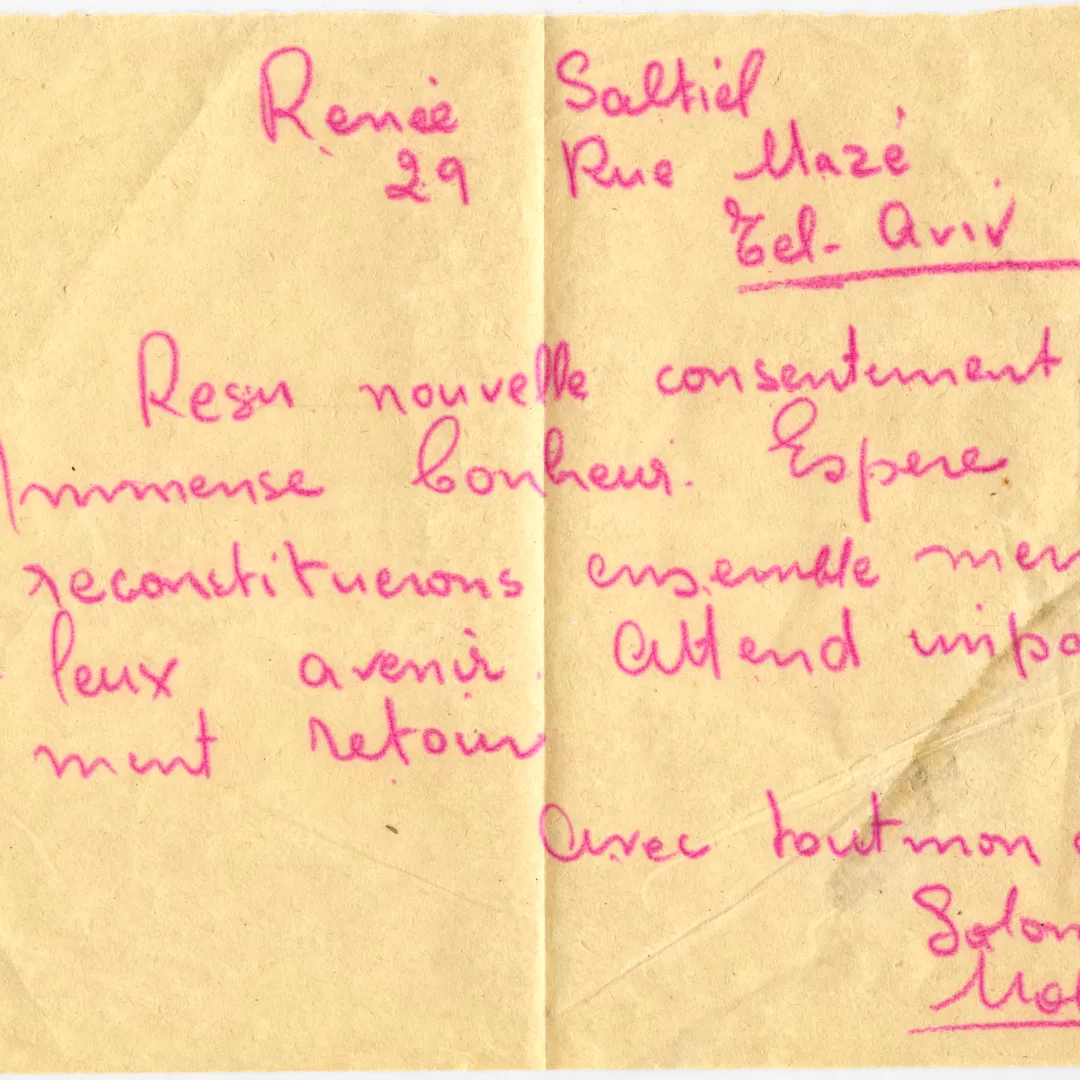 Renée Saltiel
29 Rue Mazé
Tel-Aviv
Resu nouvelle consentement.
Immense bonheur. Espere
reconstituerons ensemble mer
leux avenir. Attend impa
ment retour
Avec tout mon
Solom